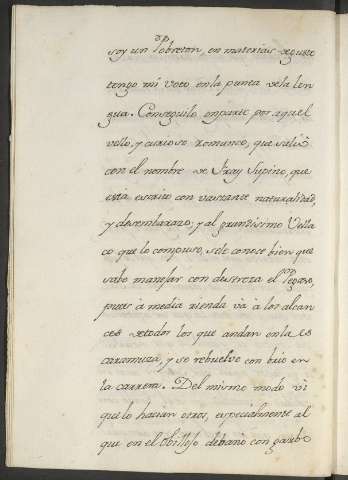 soy un Pobreton, en materias de guste
tengo mi voto en la punta de la len
gua. Conseguilo en parte por aquel
vello, y curioso Romance, que salió
con el nombre de Fray Supino, que
está escrito con vastante naturalidad,
y desembarazo; y al grandisimo Vella
co que lo compuso, se le conose bien que
sabe manejar con destreza el Pegaso,
pues à media rienda và à los alcan
ces de todos los que andan en la es
caramuza, y se rebuelve con brio en
la carrera. Del mismo modo vi
que lo hacian otros, especialmente al
que en el debanò con garbo